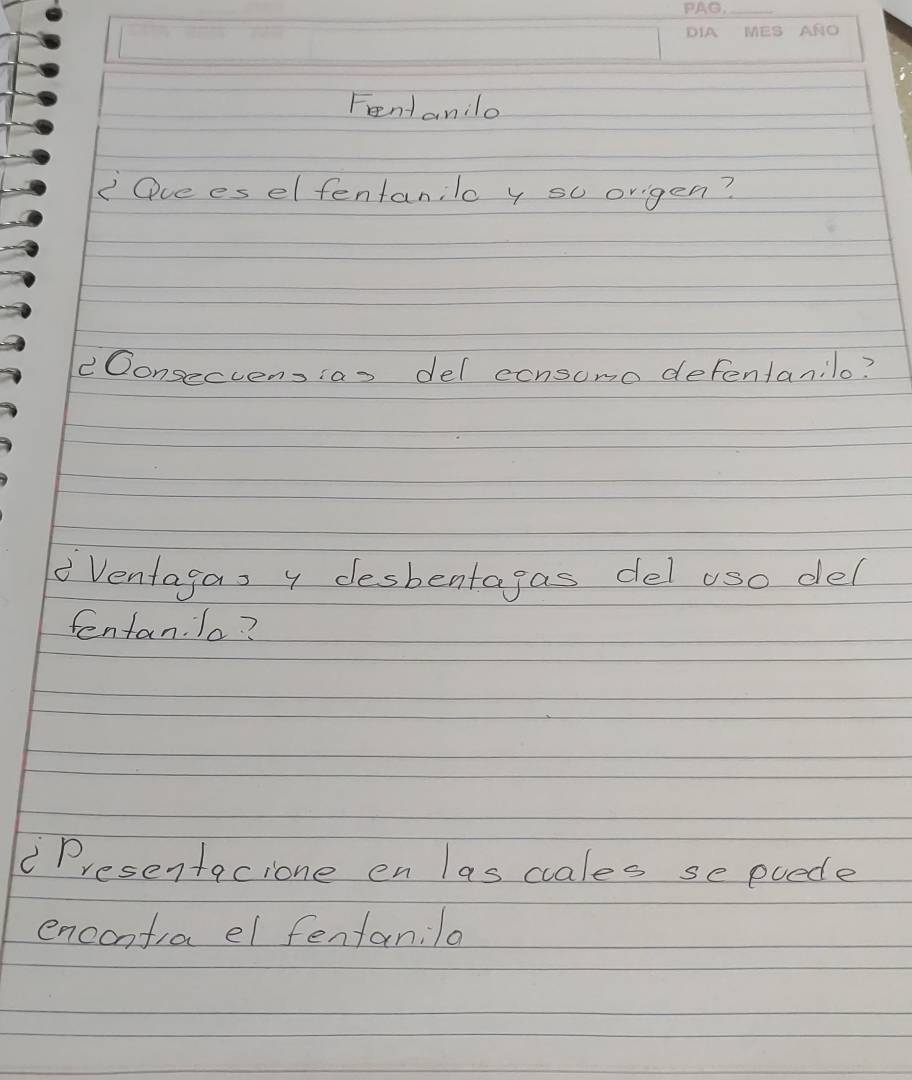 PAG.
DIA MES AÑO
Fentanilo
¿Que es el fentanilo y su origen?
¿Consecuensias del consumo de fentanilo?
¿Ventagas y desbentagas del uso del
fentanilo?
¿Presentacione en las cuales se puede
encontra el fentanilo